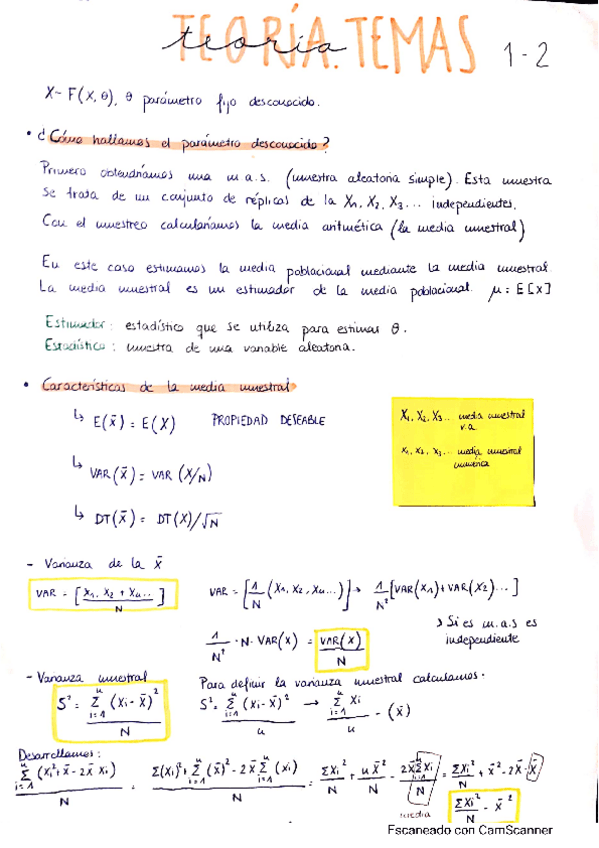 TEORÍA. TEMAS 1-2
teoría
X~ F(x, θ), θ parámetro fijo desconocido.
• ¿Cómo hallamos el parámetro desconocido?
Primero obtendríamos una m.a.s. (muestra aleatoria simple). Esta muestra
se trata de un conjunto de réplicas de la X1, X2, X3... independientes.
Con el muestreo calcularíamos la media aritmética (la media muestral)
En este caso estimamos la media poblacional mediante la media muestral.
La media muestral es un estimador de la media poblacional. μ = E[X]
Estimador: estadístico que se utiliza para estimar θ.
Estadístico: muestra de una variable aleatoria.
• Características de la media muestral
↳ E(x̄) = E(X) PROPIEDAD DESEABLE
X1, X2, X3... media muestral
v.a.
x1, x2, x3... media muestral
numérica
↳ VAR(x̄) = VAR (X/N)
↳ DT(x̄) = DT(X)/√N
- Varianza de la x̄
VAR = [X1, X2 + Xn... / N]
VAR = [1/N (X1, X2, Xn...)] → 1/N² [VAR(X1) + VAR(X2)...]
1/N² · N · VAR(X) = VAR(X)/N
→ Si es m.a.s es
independiente
- Varianza muestral
Para definir la varianza muestral calculamos.
S² = Σ i=1 n (Xi - x̄)² / N
S² = Σ i=1 n (Xi - x̄)² / n → Σ i=1 n Xi / n - (x̄)
Desarrollamos:
Σ i=1 n (Xi² + x̄ - 2x̄ Xi) / N = Σ(Xi)² + Σ i=1 n (x̄)² - 2x̄ Σ i=1 n (Xi) / N = ΣXi² / N + n x̄² / N - 2x̄ Σ i=1 n Xi / N = ΣXi² / N + x̄² - 2x̄ · x̄
media
ΣXi² / N - x̄²
Escaneado con CamScanner